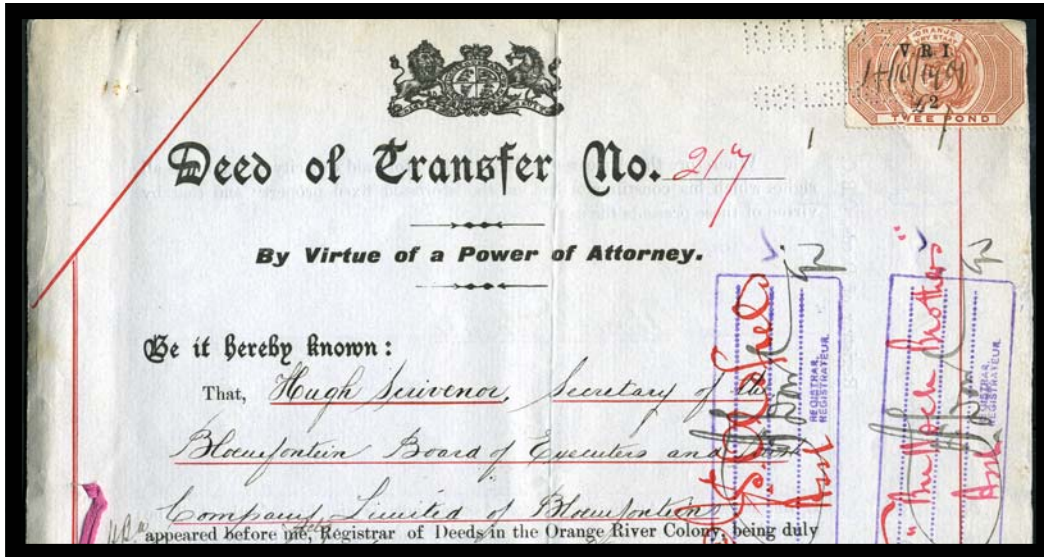 ORANJE
V. R. I.
14/10/1901
£2
TWEE POND
Deed of Transfer No. 217
By Virtue of a Power of Attorney.
Be it hereby known:
That, Hugh Scrivenor, Secretary of the
Bloemfontein Board of Executers and
Company Limited of Bloemfontein
appeared before me, Registrar of Deeds in the Orange River Colony, being duly
REGISTRAR,
REGISTRATEUR.
Asst
Brothers"
REGISTRAR,
REGISTRATEUR.
Asst